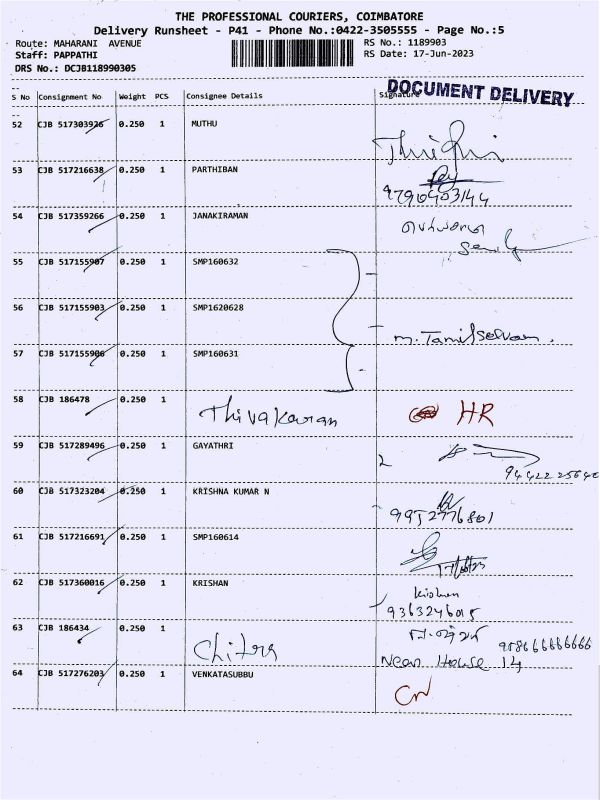 THE PROFESSIONAL COURIERS, COIMBATORE
Delivery Runsheet - P41 - Phone No.:0422-3505555 - Page No.:5
Route: MAHARANI AVENUE RS No.: 1189903
Staff: PAPPATHI RS Date: 17-Jun-2023
DRS No.: DCJB118990305
DOCUMENT DELIVERY
S No Consignment No Weight PCS Consignee Details Signature
52 CJB 517303926 0.250 1 MUTHU
53 CJB 517216638 0.250 1 PARTHIBAN
9790403144
54 CJB 517359266 0.250 1 JANAKIRAMAN
55 CJB 517155907 0.250 1 SMP160632
56 CJB 517155903 0.250 1 SMP1620628
m. Tamilselvam.
57 CJB 517155906 0.250 1 SMP160631
58 CJB 186478 0.250 1 Thivakaran HR
59 CJB 517289496 0.250 1 GAYATHRI
60 CJB 517323204 0.250 1 KRISHNA KUMAR N
9952776801
61 CJB 517216691 0.250 1 SMP160614
62 CJB 517360016 0.250 1 KRISHAN
9363246015
63 CJB 186434 0.250 1 Chitra
Near House 14
64 CJB 517276203 0.250 1 VENKATASUBBU